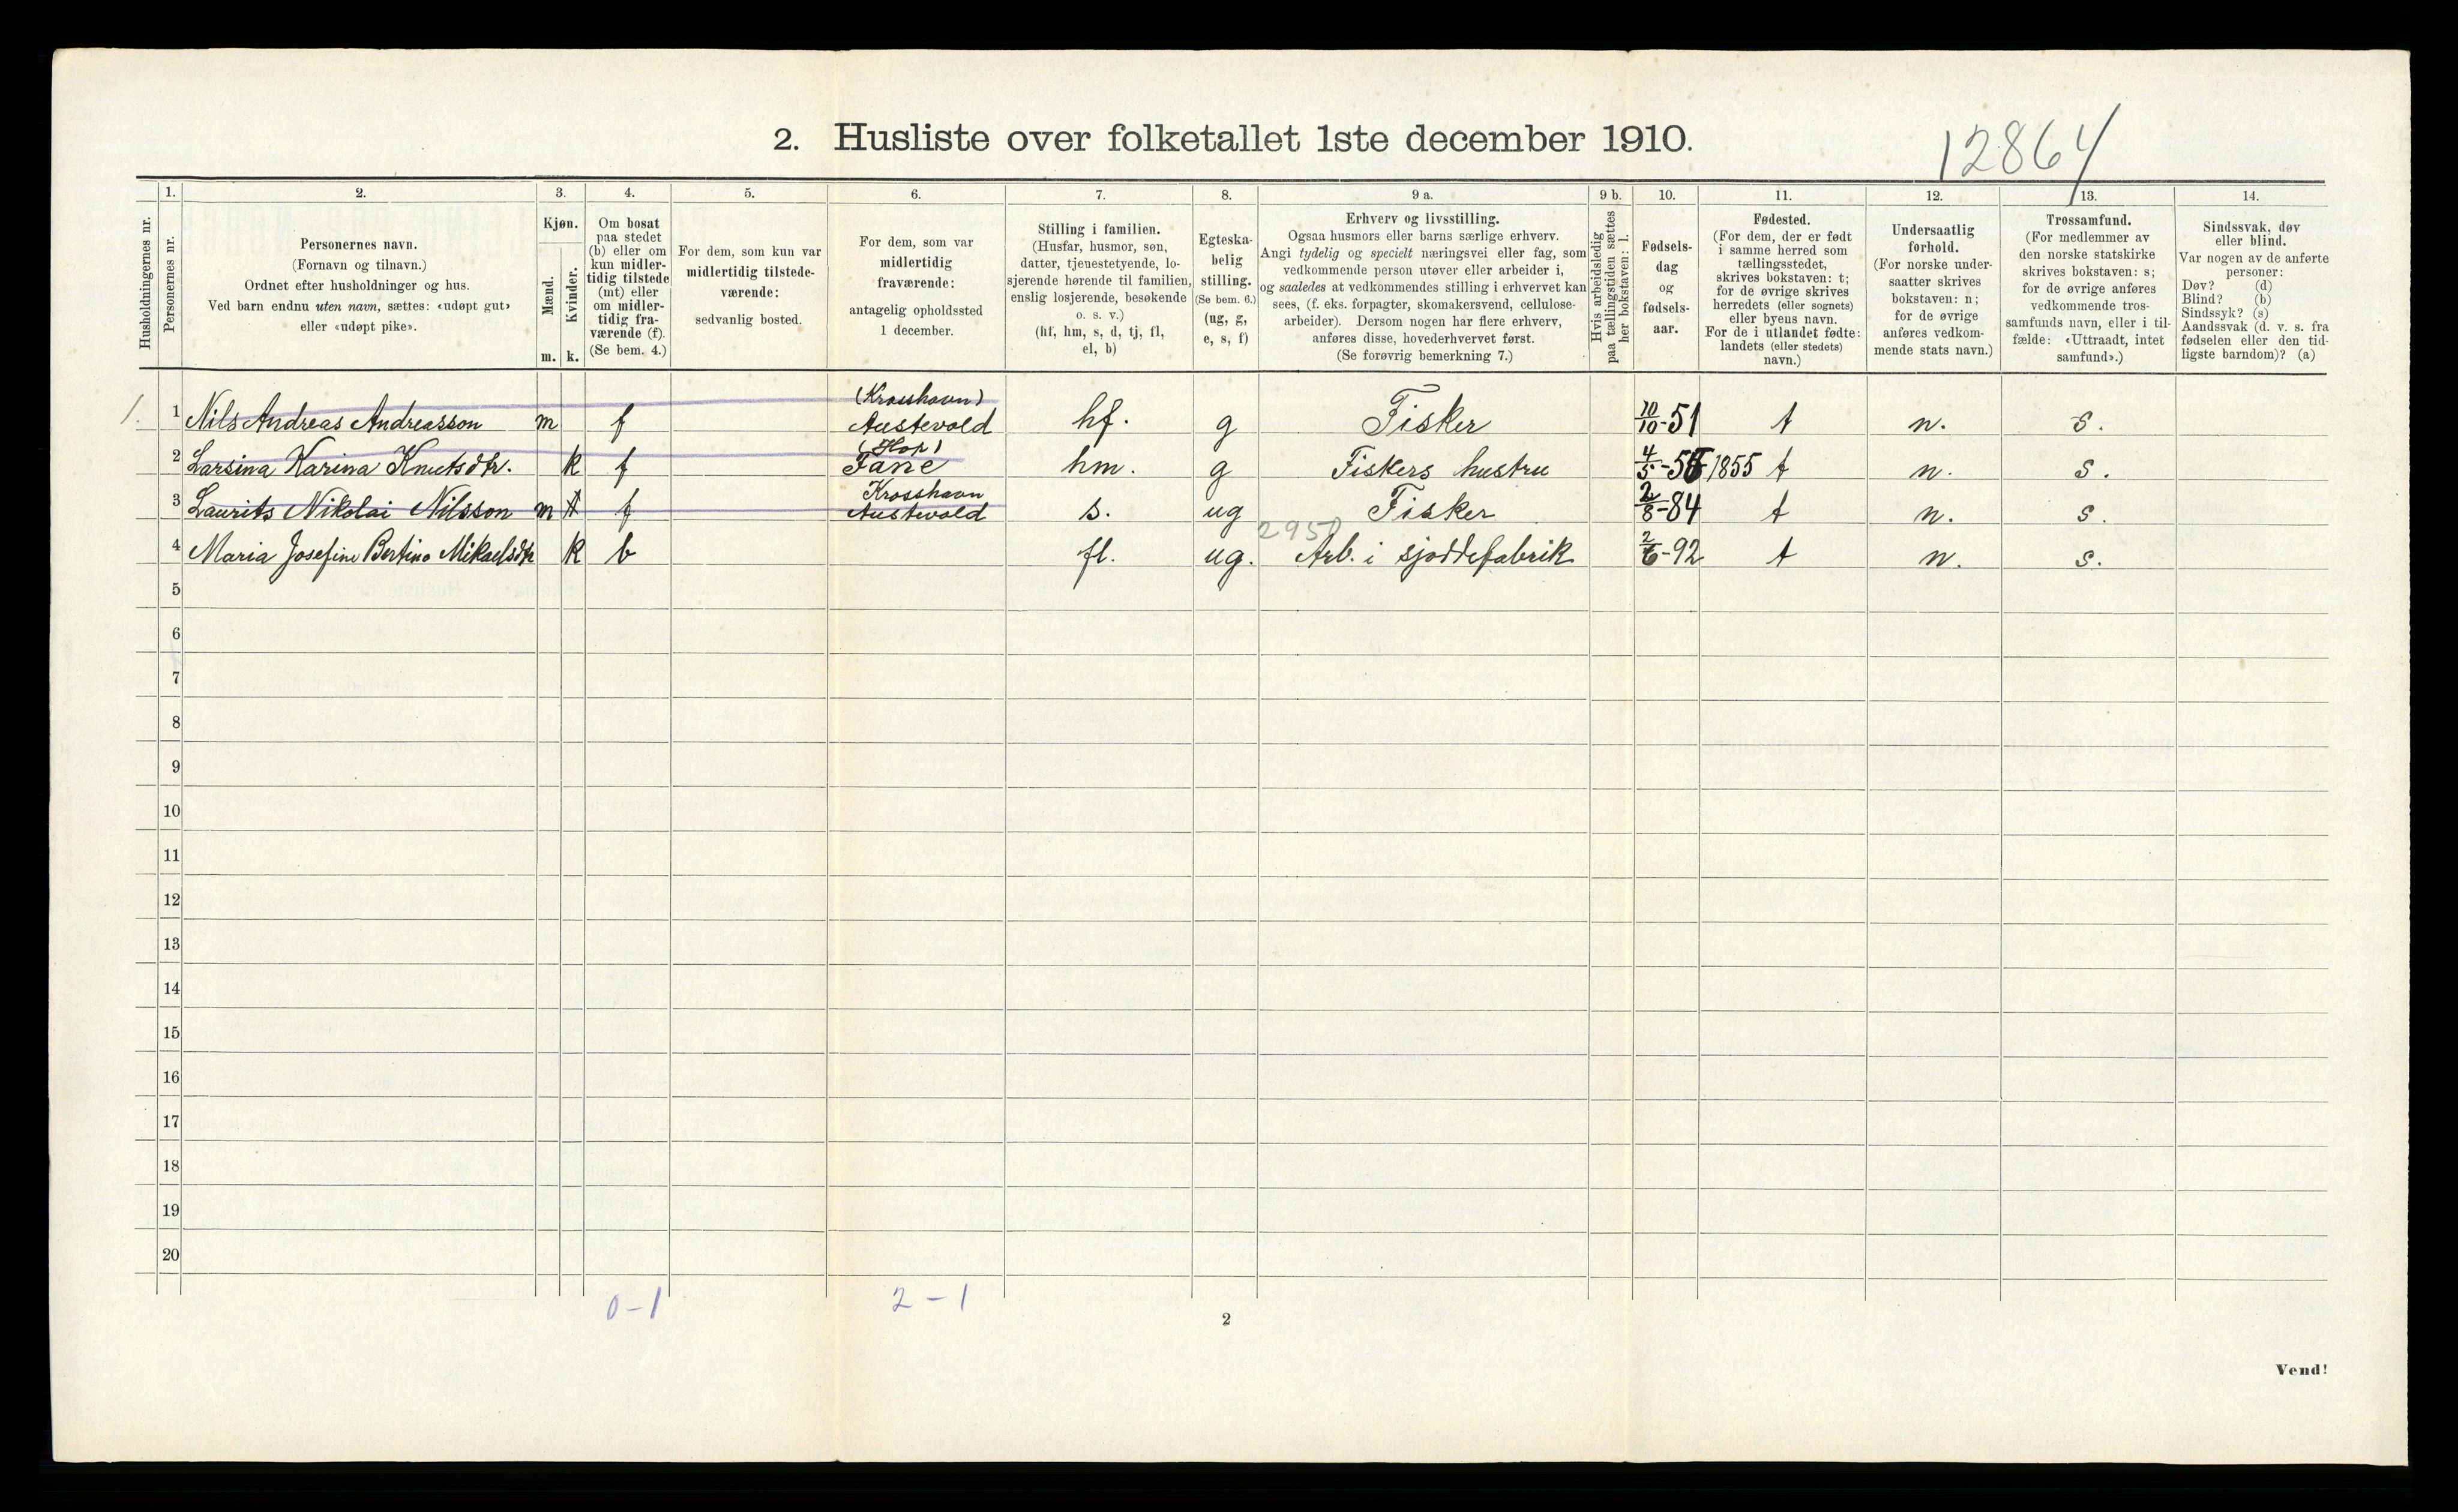 12864
2. Husliste over folketallet 1ste december 1910.
Husholdningernes nr.
1.
Personernes nr.
2.
Personernes navn.
(Fornavn og tilnavn.)
Ordnet efter husholdninger og hus.
Ved barn endnu uten navn, sættes: «udøpt gut»
eller «udøpt pike».
3.
Kjøn.
Mænd.
Kvinder.
m. k.
4.
Om bosat
paa stedet
(b) eller om
kun midler-
tidig tilstede
(mt) eller
om midler-
tidig fra-
værende (f).
(Se bem. 4.)
5.
For dem, som kun var
midlertidig tilstede-
værende:
sedvanlig bosted.
6.
For dem, som var
midlertidig
fraværende:
antagelig opholdssted
1 december.
7.
Stilling i familien.
(Husfar, husmor, søn,
datter, tjenestetyende, lo-
sjerende hørende til familien,
enslig losjerende, besøkende
o. s. v.)
(hf, hm, s, d, tj, fl,
el, b)
8.
Egteska-
belig
stilling.
(Se bem. 6.)
(ug, g,
e, s, f)
9 a.
Erhverv og livsstilling.
Ogsaa husmors eller barns særlige erhverv.
Angi tydelig og specielt næringsvei eller fag, som
vedkommende person utøver eller arbeider i,
og saaledes at vedkommendes stilling i erhvervet kan
sees, (f. eks. forpagter, skomakersvend, cellulose-
arbeider). Dersom nogen har flere erhverv,
anføres disse, hovederhvervet først.
(Se forøvrig bemerkning 7.)
9 b.
Hvis arbeidsledig
paa tællingstiden sættes
her bokstaven: l.
10.
Fødsels-
dag
og
fødsels-
aar.
11.
Fødested.
(For dem, der er født
i samme herred som
tællingsstedet,
skrives bokstaven: t;
for de øvrige skrives
herredets (eller sognets)
eller byens navn.
For de i utlandet fødte:
landets (eller stedets)
navn.)
12.
Undersaatlig
forhold.
(For norske under-
saatter skrives
bokstaven: n;
for de øvrige
anføres vedkom-
mende stats navn.)
13.
Trossamfund.
(For medlemmer av
den norske statskirke
skrives bokstaven: s;
for de øvrige anføres
vedkommende tros-
samfunds navn, eller i til-
fælde: «Uttraadt, intet
samfund».)
14.
Sindssvak, døv
eller blind.
Var nogen av de anførte
personer:
Døv? (d)
Blind? (b)
Sindssyk? (s)
Aandssvak (d. v. s. fra
fødselen eller den tid-
ligste barndom)? (a)
(Krosshavn)
1. 1 Nils Andreas Andreasson m f Austevold hf. g Fisker 10/10-51 t n. s.
(Hop)
2 Larsina Karina Knutsdtr. k f Fane hm. g Fiskers hustru 4/5-55 1855 t n. s.
Krosshavn
3 Laurits Nikolai Nilsson m f Austevold s. ug Fisker 2/8-84 t n. s.
2957
4 Maria Josefine Bertine Mikaelsdtr k b fl. ug. Arb. i sjoddefabrik 2/6-92 t n. s.
5
6
7
8
9
10
11
12
13
14
15
16
17
18
19
20
0-1 2-1
2
Vend!